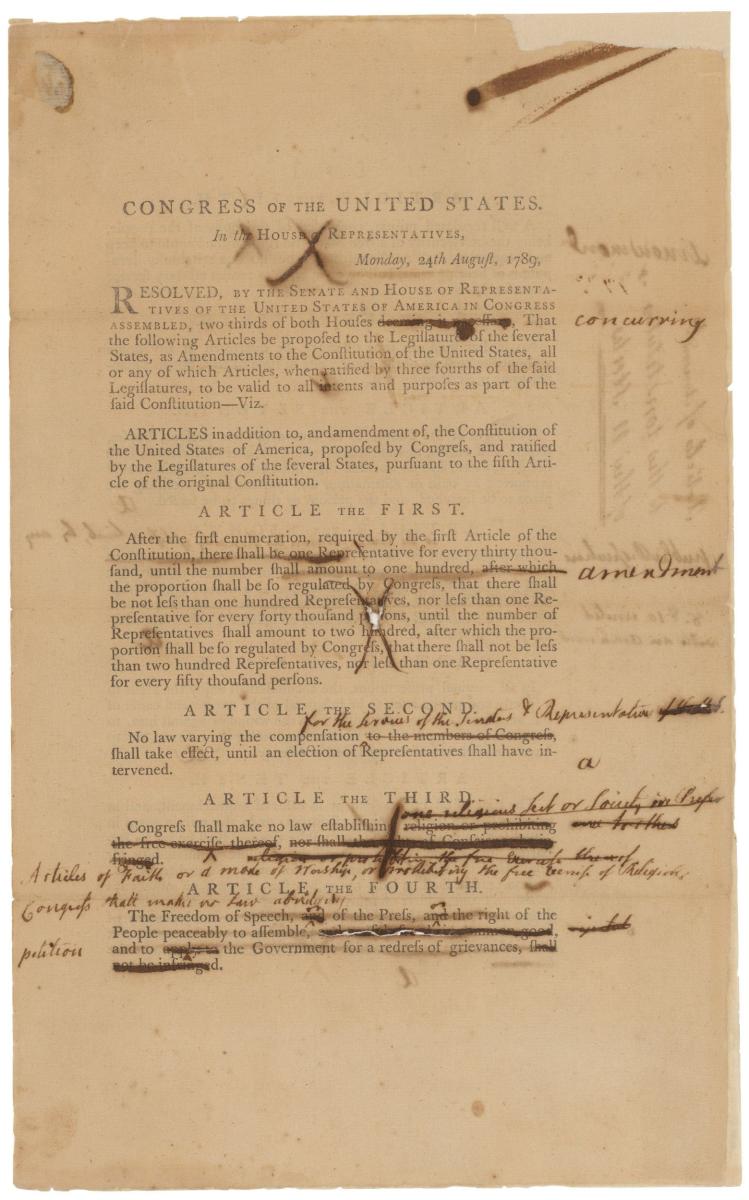 CONGRESS OF THE UNITED STATES.
In the HOUSE of REPRESENTATIVES,
Monday, 24th Auguſt, 1789,
RESOLVED, BY THE SENATE AND HOUSE OF REPRESENTA-
TIVES OF THE UNITED STATES OF AMERICA IN CONGRESS
ASSEMBLED, two thirds of both Houſes deeming it neceſſary, That
concurring
the following Articles be propoſed to the Legiſlatures of the ſeveral
States, as Amendments to the Conſtitution of the United States, all
or any of which Articles, when ratified by three fourths of the ſaid
Legiſlatures, to be valid to all intents and purpoſes as part of the
ſaid Conſtitution—Viz.
ARTICLES in addition to, and amendment of, the Conſtitution of
the United States of America, propoſed by Congreſs, and ratified
by the Legiſlatures of the ſeveral States, purſuant to the fifth Arti-
cle of the original Conſtitution.
ARTICLE THE FIRST.
After the firſt enumeration, required by the firſt Article of the
Conſtitution, there ſhall be one Repreſentative for every thirty thou-
ſand, until the number ſhall amount to one hundred, after which
amendment
the proportion ſhall be ſo regulated by Congreſs, that there ſhall
be not leſs than one hundred Repreſentatives, nor leſs than one Re-
preſentative for every forty thouſand perſons, until the number of
Repreſentatives ſhall amount to two hundred, after which the pro-
portion ſhall be ſo regulated by Congreſs, that there ſhall not be leſs
than two hundred Repreſentatives, nor leſs than one Repreſentative
for every fifty thouſand perſons.
ARTICLE THE SECOND.
for the services of the Senators & Representatives
No law varying the compenſation to the members of Congreſs,
ſhall take effect, until an election of Repreſentatives ſhall have in-
tervened.
a
ARTICLE THE THIRD.
one religious Sect or Society in Prefer
Congreſs ſhall make no law eſtabliſhing religion or prohibiting
the free exerciſe thereof, nor ſhall the
fringed.
religion or prohibiting the free exercise thereof
Articles of Faith or a mode of Worship, or prohibiting the free exercise of Religion,
ARTICLE THE FOURTH.
Congreſs shall make no law abridging
The Freedom of Speech, and of the Preſs, and the right of the
People peaceably to aſſemble, common good,
petition
and to apply to the Government for a redreſs of grievances, ſhall
not be infringed.